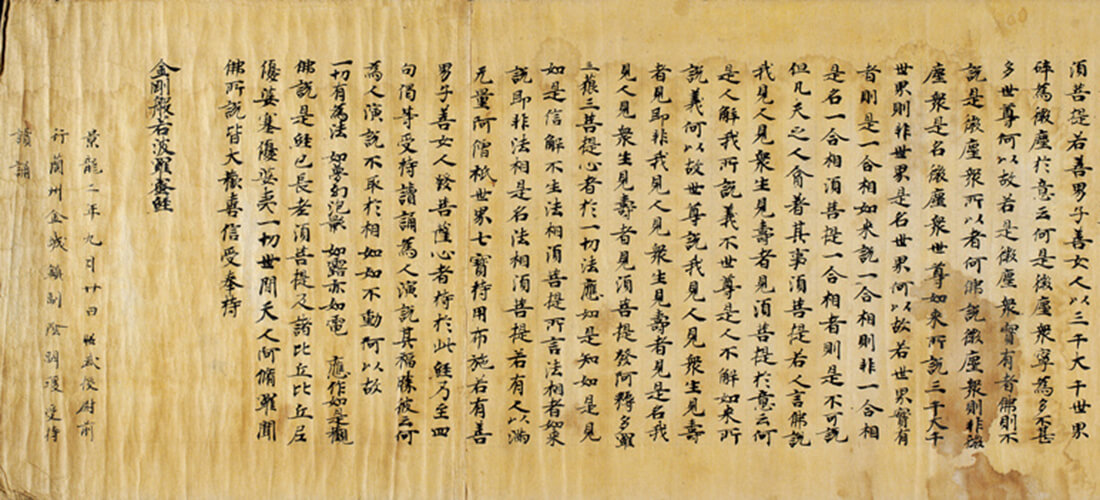 須菩提若善男子善女人以三千大千世界
碎為微塵於意云何是微塵衆寧為多不甚
多世尊何以故若是微塵衆實有者佛則不
說是微塵衆所以者何佛說微塵衆則非微
塵衆是名微塵衆世尊如來所說三千大千
世界則非世界是名世界何以故若世界實有
者則是一合相如來說一合相則非一合相
是名一合相須菩提一合相者則是不可說
但凡夫之人貪著其事須菩提若人言佛說
我見人見衆生見壽者見須菩提於意云何
是人解我所說義不世尊是人不解如來所
說義何以故世尊說我見人見衆生見壽
者見即非我見人見衆生見壽者見是名我
見人見衆生見壽者見須菩提發阿耨多羅
三藐三菩提心者於一切法應如是知如是見
如是信解不生法相須菩提所言法相者如來
說即非法相是名法相須菩提若有人以滿
无量阿僧祇世界七寶持用布施若有善
男子善女人發菩薩心者持於此經乃至四
句偈等受持讀誦為人演說其福勝彼云何
為人演說不取於相如如不動何以故
一切有為法 如夢幻泡影 如露亦如電 應作如是觀
佛說是經已長老須菩提及諸比丘比丘尼
優婆塞優婆夷一切世間天人阿脩羅聞
佛所說皆大歡喜信受奉持
金剛般若波羅蜜經
景龍二年九月廿日昭武校尉前
行蘭州金城鎮副陰嗣瓊受持
讀誦